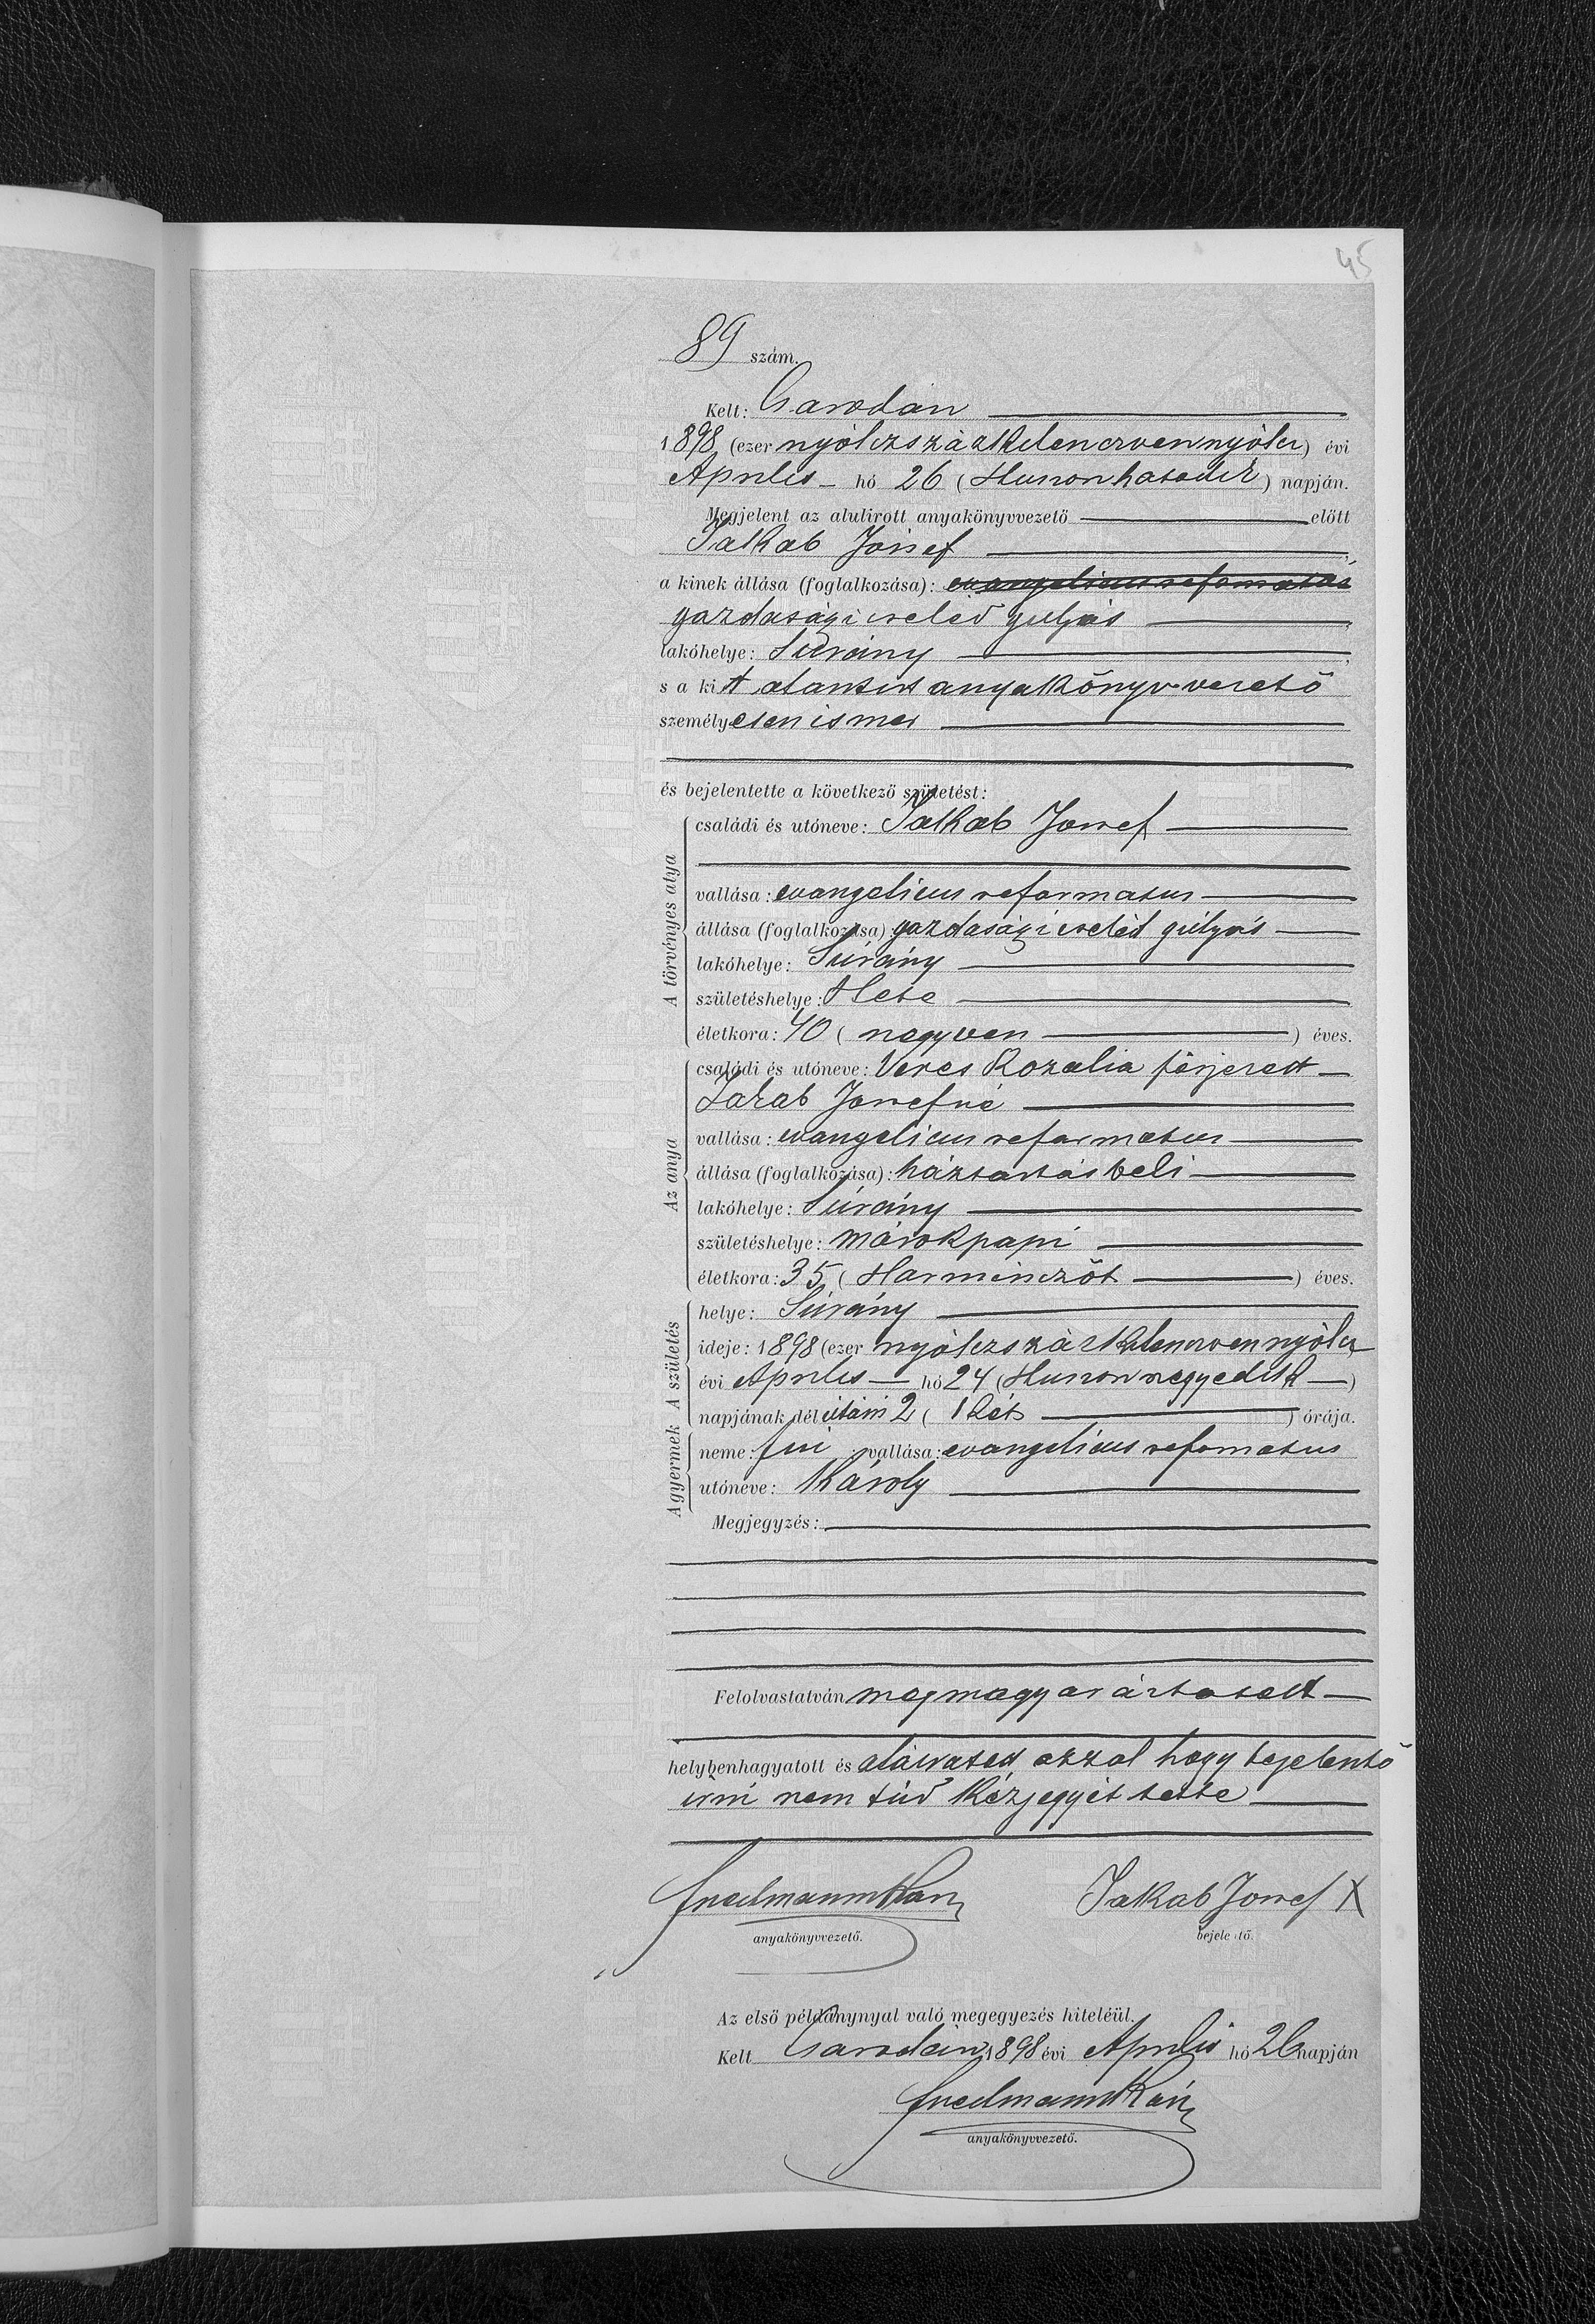 45
89 szám.
Kelt: Csarodán
1898 (ezer nyólczszázkilenczvennyólcz) évi
Április hó 26 (Huszonhatodik) napján.
Megjelent az alulirott anyakönyvvezető előtt
Jakab József
a kinek állása (foglalkozása): evangelicus reformatus
gazdasági cseléd gulyás
lakóhelye: Surány
s a kit alantirt anyakönyvvezető
személyesen ismer
és bejelentette a következő születést:
A törvényes atya
családi és utóneve: Jakab József
vallása: evangelicus reformatus
állása (foglalkozása): gazdasági cseléd gulyás
lakóhelye: Surány
születéshelye: Hete
életkora: 40 (negyven) éves.
Az anya
családi és utóneve: Veres Rozalia férjezett
Jakab Józsefné
vallása: evangelicus reformatus
állása (foglalkozása): háztartásbeli
lakóhelye: Surány
születéshelye: Márokpapi
életkora: 35 (Harminczöt) éves.
A születés
helye: Surány
ideje: 1898 (ezer nyólczszázkilenczvennyólcz
évi Április hó 24 (Huszonnegyedik)
napjának dél utáni 2 (Két) órája.
A gyermek
neme: fiú vallása: evangelicus reformatus
utóneve: Károly
Megjegyzés:
Felolvastatván megmagyaráztatott
helybenhagyatott és aláiratott azzal hogy bejelentő
irni nem túd kézjegyét tette
anyakönyvvezető.
Jakab József X
bejelentő.
Az első példánynyal való megegyezés hiteléül.
Kelt Csarodán 1898 évi Április hó 26 napján
anyakönyvvezető.